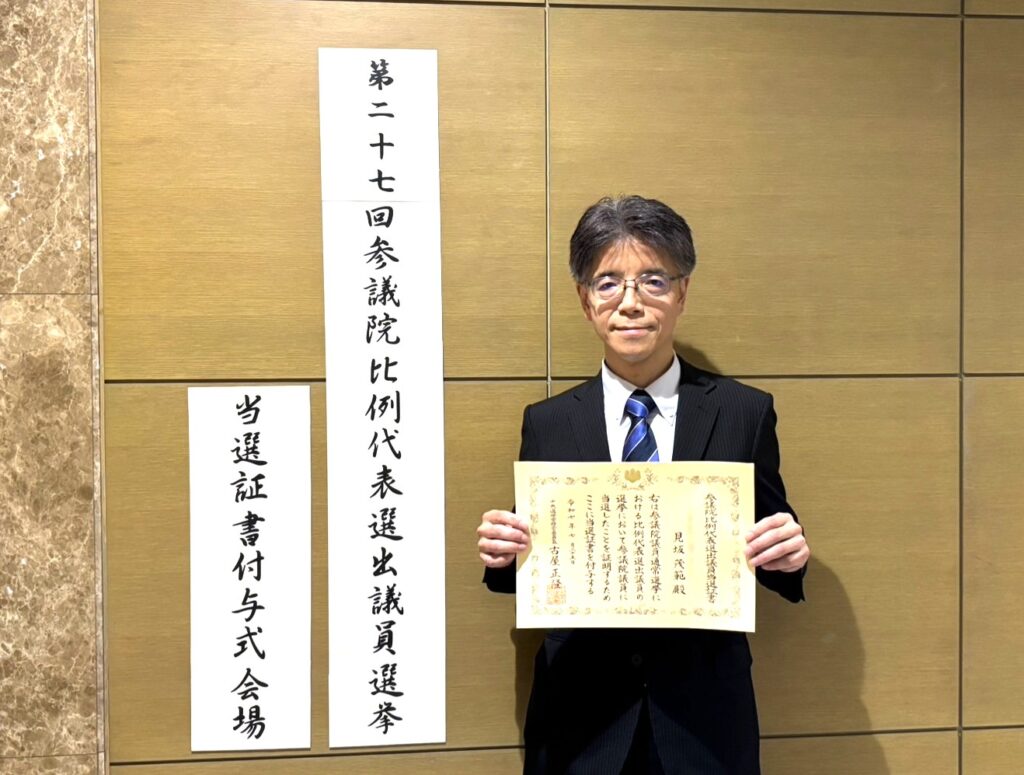 第二十七回参議院比例代表選出議員選挙
当選証書付与式会場
参議院比例代表選出議員当選証書
見坂茂範殿
右は参議院議員通常選挙に
おける比例代表選出議員の
選挙において参議院議員に
当選したことを証明するため
ここに当選証書を付与する
令和七年七月二十五日
古屋正隆